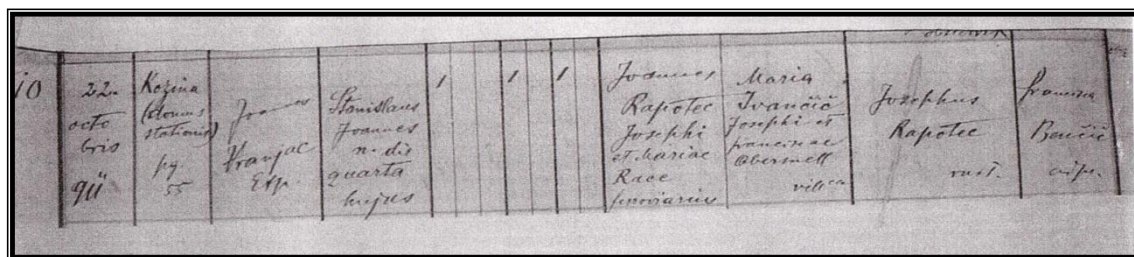 10
22.
octo
bris
Kozina
(domus
stationis)
55
Joannes
Kranjac
Exp.
Stanislaus
Joannes
n. die
quarta
hujus
1
1
1
Joannes
Rapotec
Josephi
et Mariae
Race
ferroviarius
Maria
Ivančič
Josephi et
Franciscae
Obersnell
Josephus
Rapotec
rust.
Francisca
Benčič